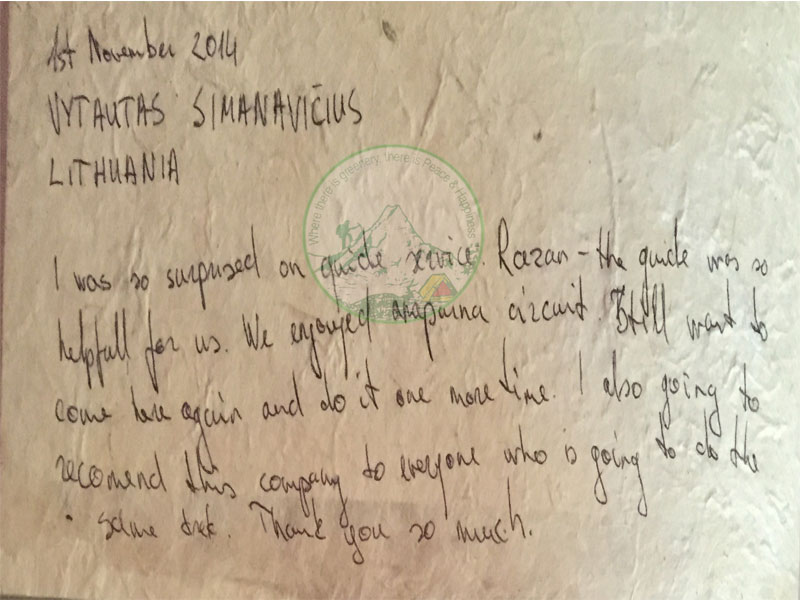 1st November 2014
VYTAUTAS SIMANAVIČIUS
LITHUANIA
Where there is greenery, there is Peace & Happiness
I was so surprised on guide service. Razan - the guide was so
helpfull for us. We enjoyed anapurna circuit. Still want to
come here again and do it one more time. I also going to
recomend this company to everyone who is going to do the
same trek. Thank you so much.